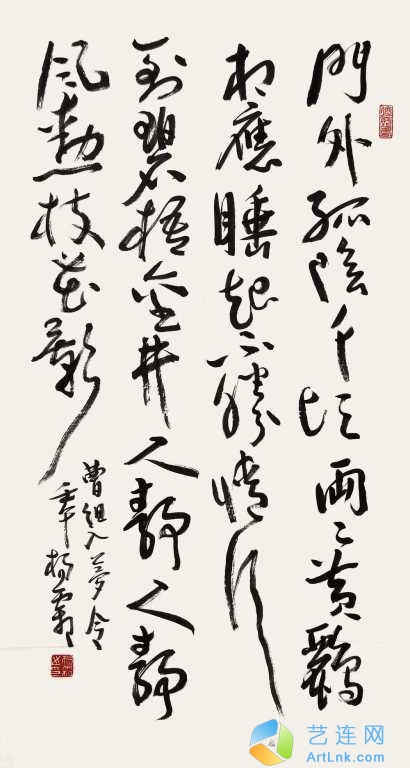 門外孤陰千頃兩〻黃鸝
相應睡起不勝情行
到碧梧金井人靜人靜
風動枝花影
曹組入夢令
壬午楊
艺连网
ArtLnk.com